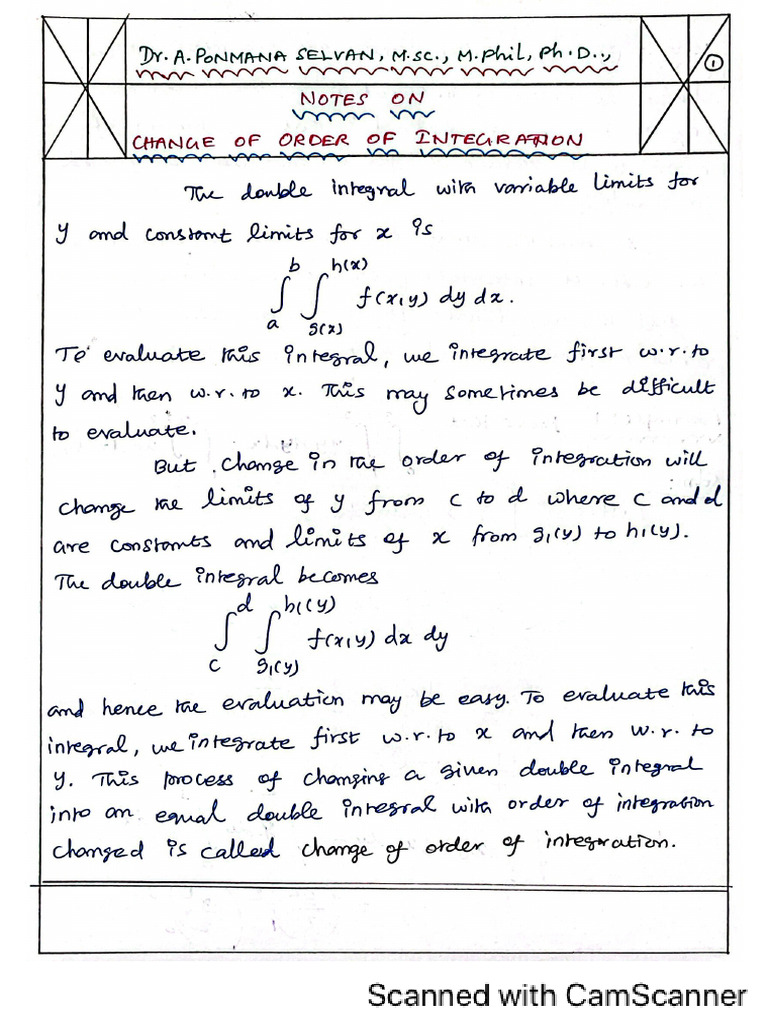 Dr. A. PONMANA SELVAN, M.sc., M.Phil, Ph.D.,,
1
NOTES ON
CHANGE OF ORDER OF INTEGRATION
The double integral with variable limits for
y and constant limits for x is
∫_a^b ∫_{g(x)}^{h(x)} f(x,y) dy dx.
To evaluate this integral, we integrate first w.r.to
y and then w.r.to x. This may sometimes be difficult
to evaluate.
But change in the order of integration will
change the limits of y from c to d where c and d
are constants and limits of x from g₁(y) to h₁(y).
The double integral becomes
∫_c^d ∫_{g₁(y)}^{h₁(y)} f(x,y) dx dy
and hence the evaluation may be easy. To evaluate this
integral, we integrate first w.r.to x and then w.r.to
y. This process of changing a given double integral
into an equal double integral with order of integration
changed is called change of order of integration.
Scanned with CamScanner